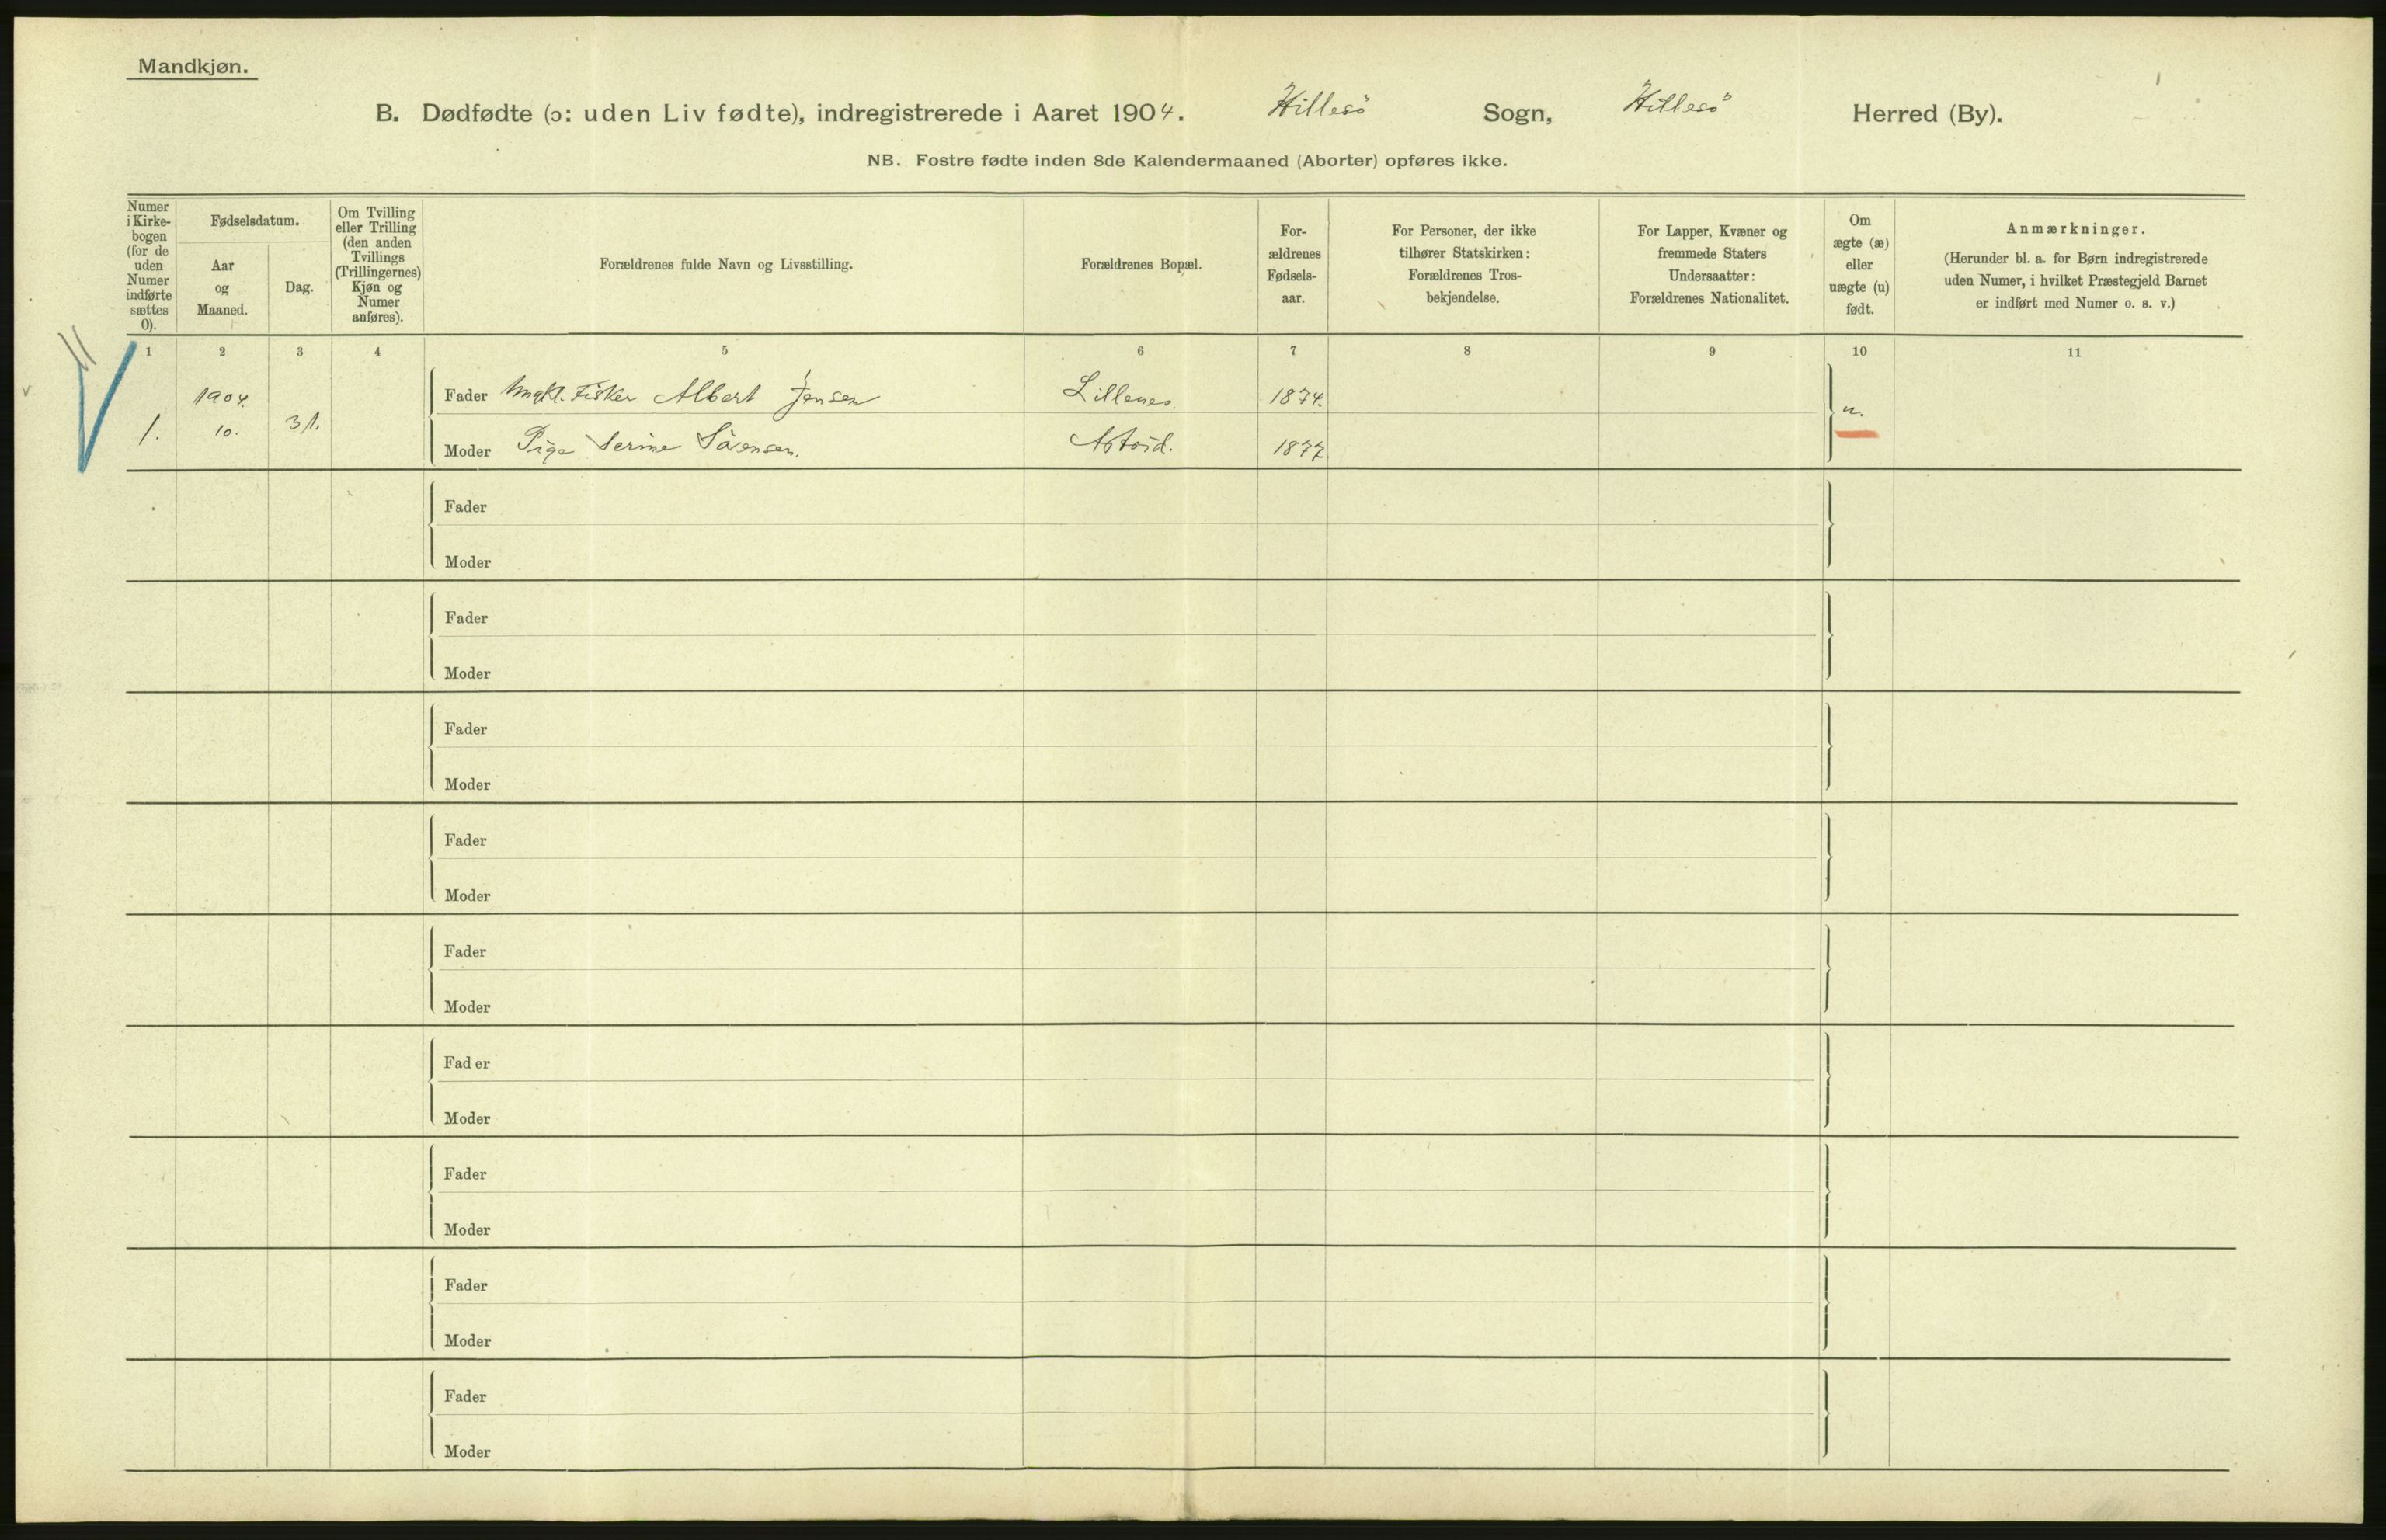 Mandkjøn.
B. Dødfødte (ɔ: uden Liv fødte), indregistrerede i Aaret 1904. Hillesö Sogn, Hillesö Herred (By).
NB. Fostre fødte inden 8de Kalendermaaned (Aborter) opføres ikke.
Numer
i Kirke-
bogen
(for de
uden
Numer
indførte
sættes
0).
Fødselsdatum.
Aar
og
Maaned.
Dag.
Om Tvilling
eller Trilling
(den anden
Tvillings
(Trillingernes)
Kjøn og
Numer
anføres).
Forældrenes fulde Navn og Livsstilling.
Forældrenes Bopæl.
For-
ældrenes
Fødsels-
aar.
For Personer, der ikke
tilhører Statskirken:
Forældrenes Tros-
bekjendelse.
For Lapper, Kvæner og
fremmede Staters
Undersaatter:
Forældrenes Nationalitet.
Om
ægte (æ)
eller
uægte (u)
født.
Anmærkninger.
(Herunder bl. a. for Børn indregistrerede
uden Numer, i hvilket Præstegjeld Barnet
er indført med Numer o. s. v.)
1 2 3 4 5 6 7 8 9 10 11
1.
1904.
10.
31.
Fader Ungkl. Fisker Albert Jensen Lillenes. 1874.
u.
Moder Pige Serine Sörensen. 1877
Fader
Moder
Fader
Moder
Fader
Moder
Fader
Moder
Fader
Moder
Fader
Moder
Fader
Moder
Fader
Moder
Fader
Moder